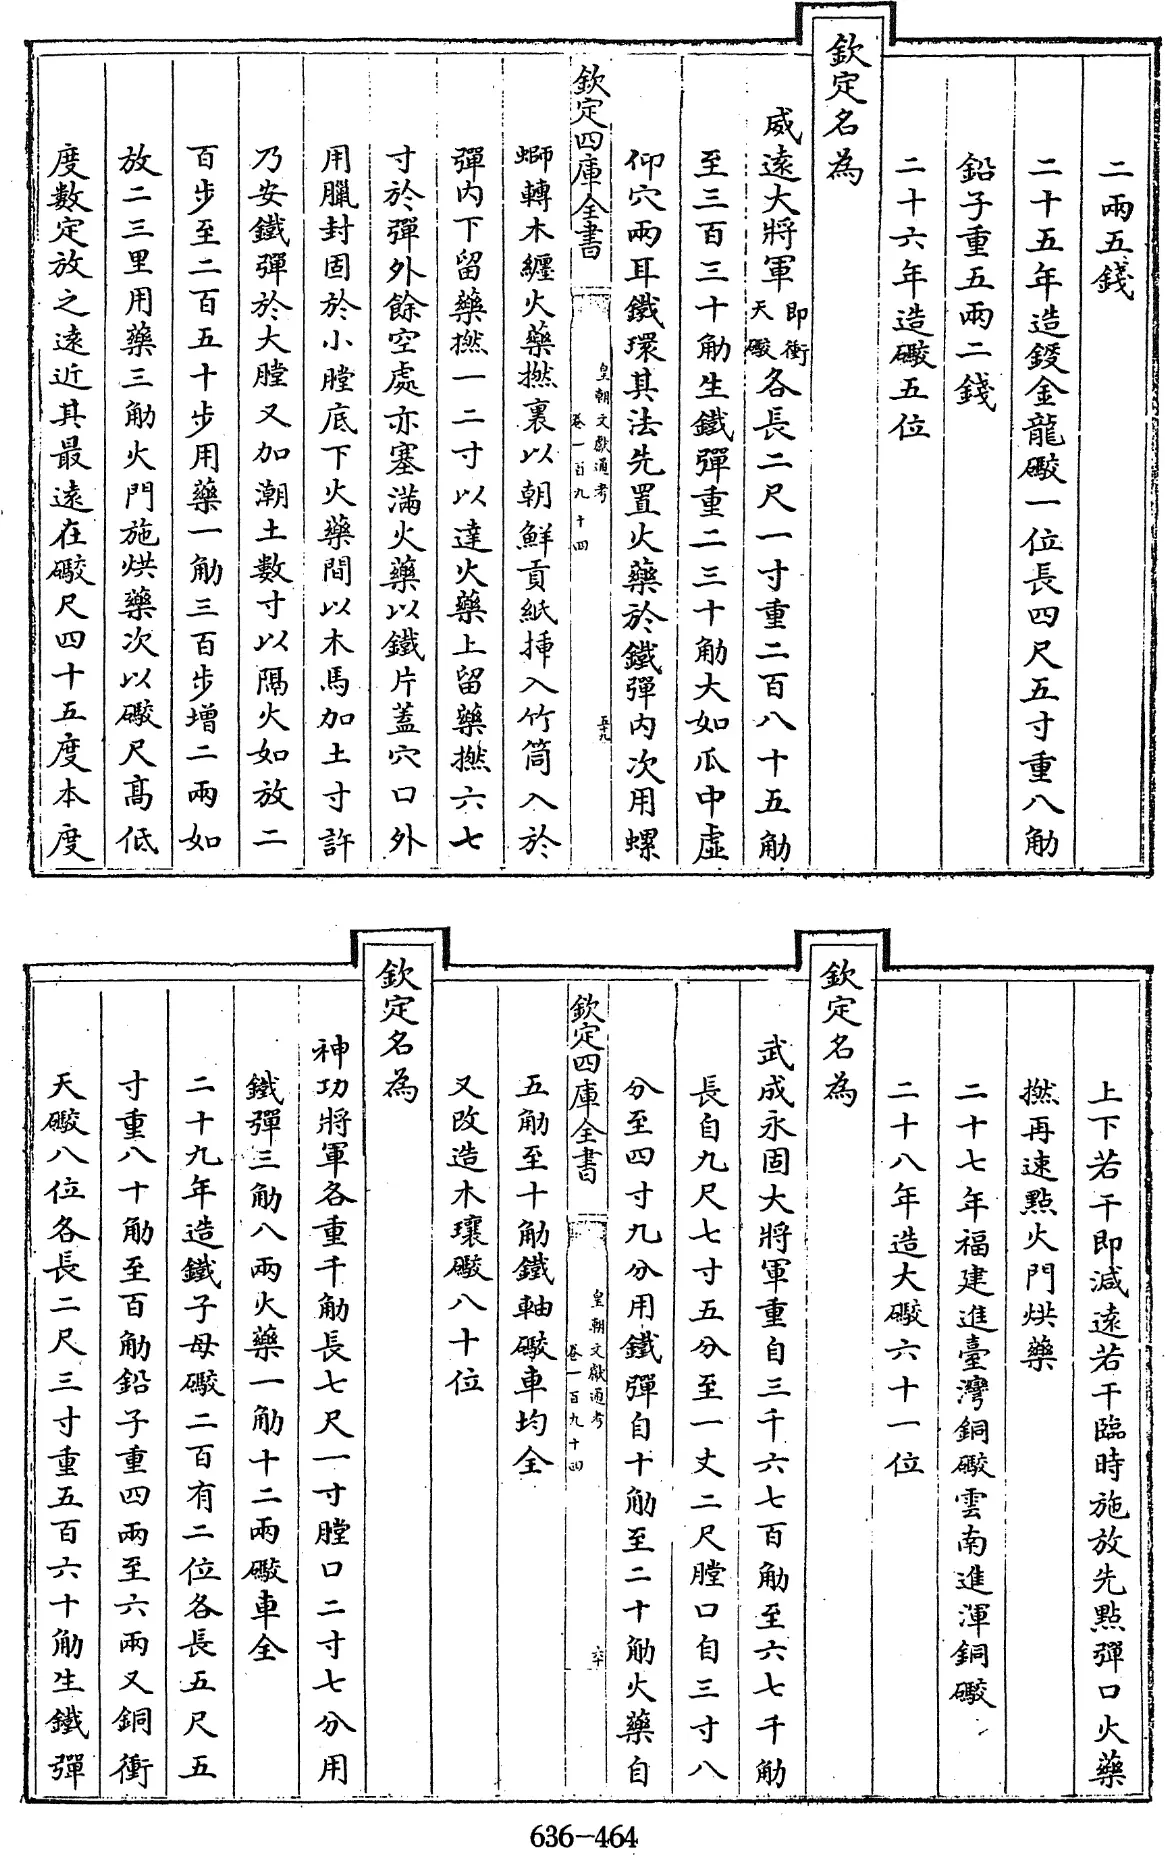 二兩五錢
二十五年造鍐金龍礮一位長四尺五寸重八觔
鉛子重五兩二錢
二十六年造礮五位
欽定名為
威遠大將軍即衝天礮各長二尺一寸重二百八十五觔
至三百三十觔生鐵彈重二三十觔大如瓜中虛
仰穴兩耳鐵環其法先置火藥於鐵彈内次用螺
欽定四庫全書
皇朝文獻通考
卷一百九十四
五十九
螄轉木纏火藥撚裏以朝鮮貢紙挿入竹筒入於
彈内下留藥撚一二寸以達火藥上留藥撚六七
寸於彈外餘空處亦塞滿火藥以鐵片蓋穴口外
用臘封固於小膛底下火藥間以木馬加土寸許
乃安鐵彈於大膛又加潮土數寸以隔火如放二
百步至二百五十步用藥一觔三百步增二兩如
放二三里用藥三觔火門施烘藥次以礮尺髙低
度數定放之遠近其最遠在礮尺四十五度本度
上下若干即減遠若干臨時施放先點彈口火藥
撚再速點火門烘藥
二十七年福建進臺灣銅礮雲南進渾銅礮
二十八年造大礮六十一位
欽定名為
武成永固大將軍重自三千六七百觔至六七千觔
長自九尺七寸五分至一丈二尺膛口自三寸八
分至四寸九分用鐵彈自十觔至二十觔火藥自
欽定四庫全書
皇朝文獻通考
卷一百九十四
六十
五觔至十觔鐵軸礮車均全
又改造木瓖礮八十位
欽定名為
神功將軍各重千觔長七尺一寸膛口二寸七分用
鐵彈三觔八兩火藥一觔十二兩礮車全
二十九年造鐵子母礮二百有二位各長五尺五
寸重八十觔至百觔鉛子重四兩至六兩又銅衝
天礮八位各長二尺三寸重五百六十觔生鐵彈
636-464